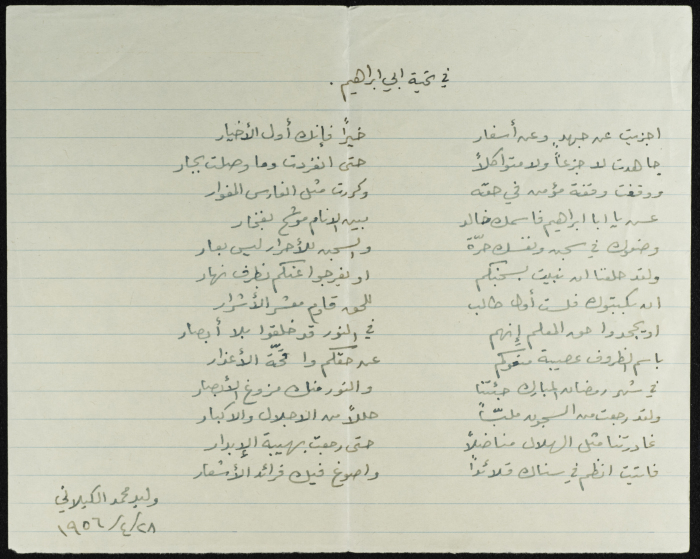 في تحية ابي ابراهيم.
اجزيت عن جهدٍ وعن أسفار خيراً فإنك أول الأخيار
جاهدت لا جزعاً ولا متواكلاً حتى انفردت وما وصلت بجار
ووقفت وقفة مؤمن في حقه وكررت مثل الفارس المغوار
عش يا ابا ابراهيم فاسمك خالد بين الانام موشح بفخار
وضعوك في سجن ونفسك حرّة والسجن للأحرار ليس بعار
ولقد حلفنا ان نبيت بسجنكم او يفرجوا عنكم بظرف نهار
ان يكبتوك فلست أول طالب للحق قاوم معشر الأشرار
او يجحدوا حق المعلم إنهم في النور قد خلقوا بلا أبصار
باسم الظروف عصيبة منعوكم عن حقكم وا قحّة الأعذار
في شهر رمضان المبارك جئتنا والنور منك مزوغ الأبصار
ولقد رجعت من السجون ملبّياً حللاً من الاجلال والاكبار
غادرتنا مثل الهلال مناضلاً حتى رجعت بهيبة الإبدار
فاتيت انظم في سناك قلائداً واصوغ فيك فرائد الأشعار
وليد محمد الكيلاني
٢٨/٤/١٩٥٦